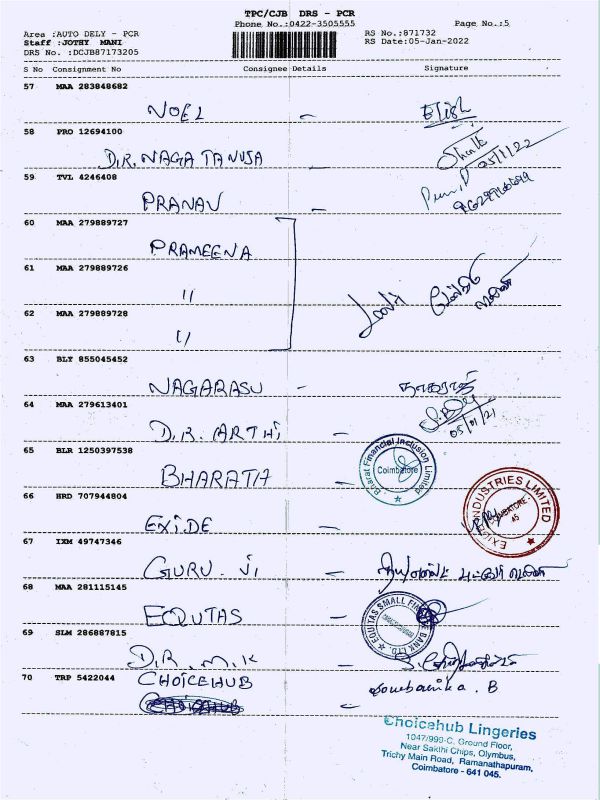 TPC/CJB DRS - PCR
Phone No.:0422-3505555
Page No.:5
Area :AUTO DELY - PCR
Staff :JOTHY MANI
DRS No. :DCJB87173205
RS No.:871732
RS Date:05-Jan-2022
S No Consignment No Consignee Details Signature
57 MAA 283848682
NOEL -
58 PRO 12694100
D.R. NAGA TANUJA
05/1/22
59 TVL 4246408
PRANAV -
60 MAA 279889727
PRAMEENA
61 MAA 279889726
"
62 MAA 279889728
"
63 BLY 855045452
NAGARASU - நாகராசு
64 MAA 279613401
D.R. ARTHI -
05/01/21
65 BLR 1250397538
BHARATH -
Bharat Financial Inclusion Limited
Coimbatore
66 HRD 707944804
EXIDE -
EXIDE INDUSTRIES LIMITED
COIMBATORE - 45
67 IXM 49747346
GURU. JI -
68 MAA 281115145
EQUTAS -
EQUITAS SMALL FINANCE BANK LTD.
69 SLM 286887815
D.R. M.K -
70 TRP 5422044
CHOICEHUB -
Soubarnika . B
Choicehub Lingeries
1047/999-C, Ground Floor,
Near Sakthi Chips, Olymbus,
Trichy Main Road, Ramanathapuram,
Coimbatore - 641 045.